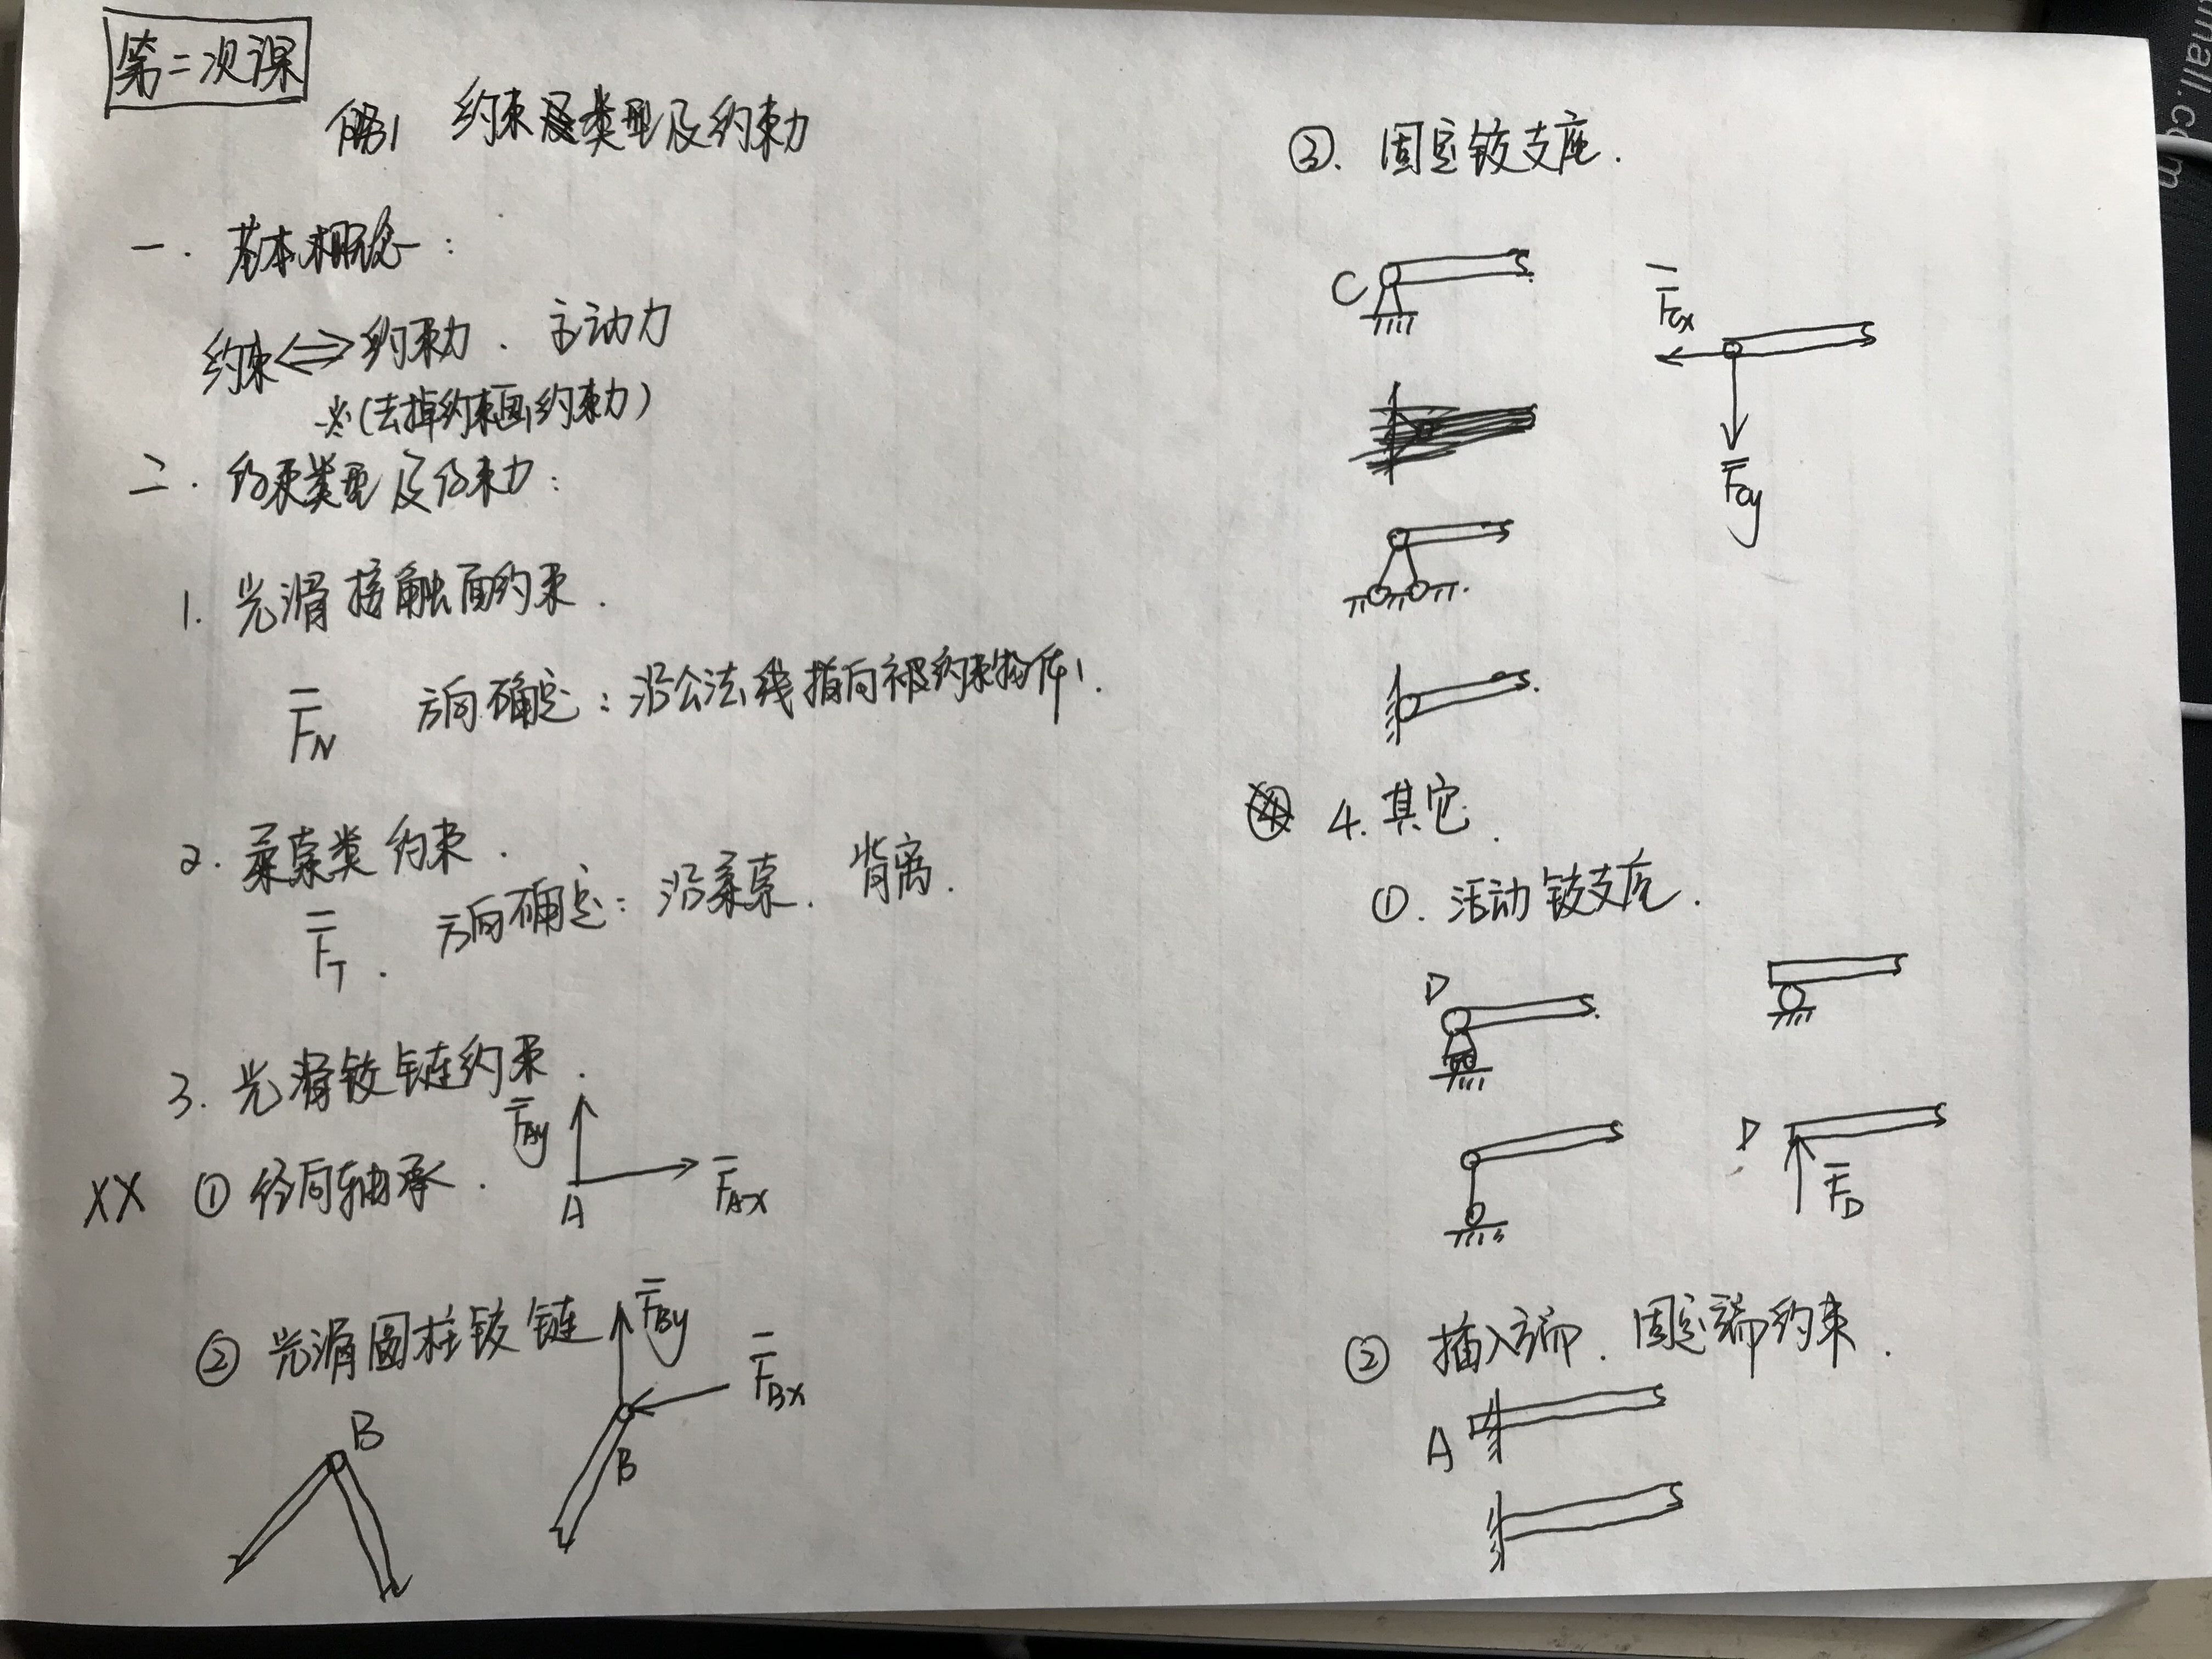 第二次课
约束类型及约束力
一. 基本概念:
约束⇔约束力. 主动力
※(去掉约束画约束力)
二. 约束类型及约束力:
1. 光滑接触面约束.
F̅N 方向确定: 沿公法线指向被约束物体.
2. 柔索类约束.
F̅T. 方向确定: 沿柔索. 背离.
3. 光滑铰链约束.
XX ① 径向轴承.
F̅Ay
A
F̅Ax
② 光滑圆柱铰链
F̅By
F̅Bx
B
B
③. 固定铰支座.
C
F̅Cx
F̅Cy
4. 其它.
①. 活动铰支座.
D
D
F̅D
② 插入端. 固定端约束.
A